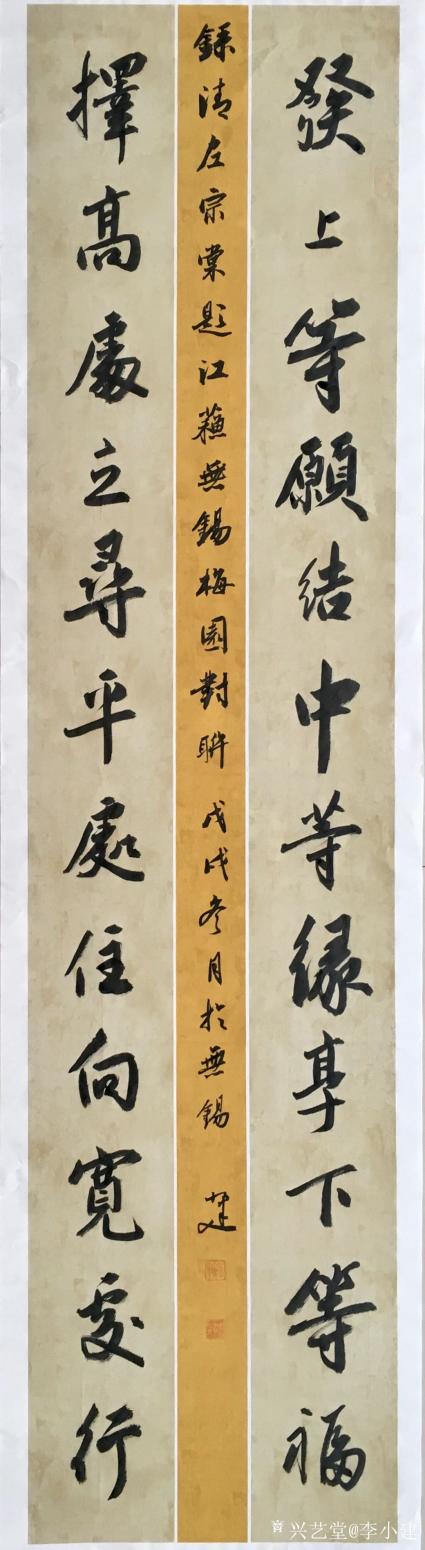 發上等願結中等緣享下等福
擇高處立尋平處住向寬處行
錄清左宗棠題江蘇無錫梅園對聯 戊戌冬月於無錫 建
兴艺堂@李小建